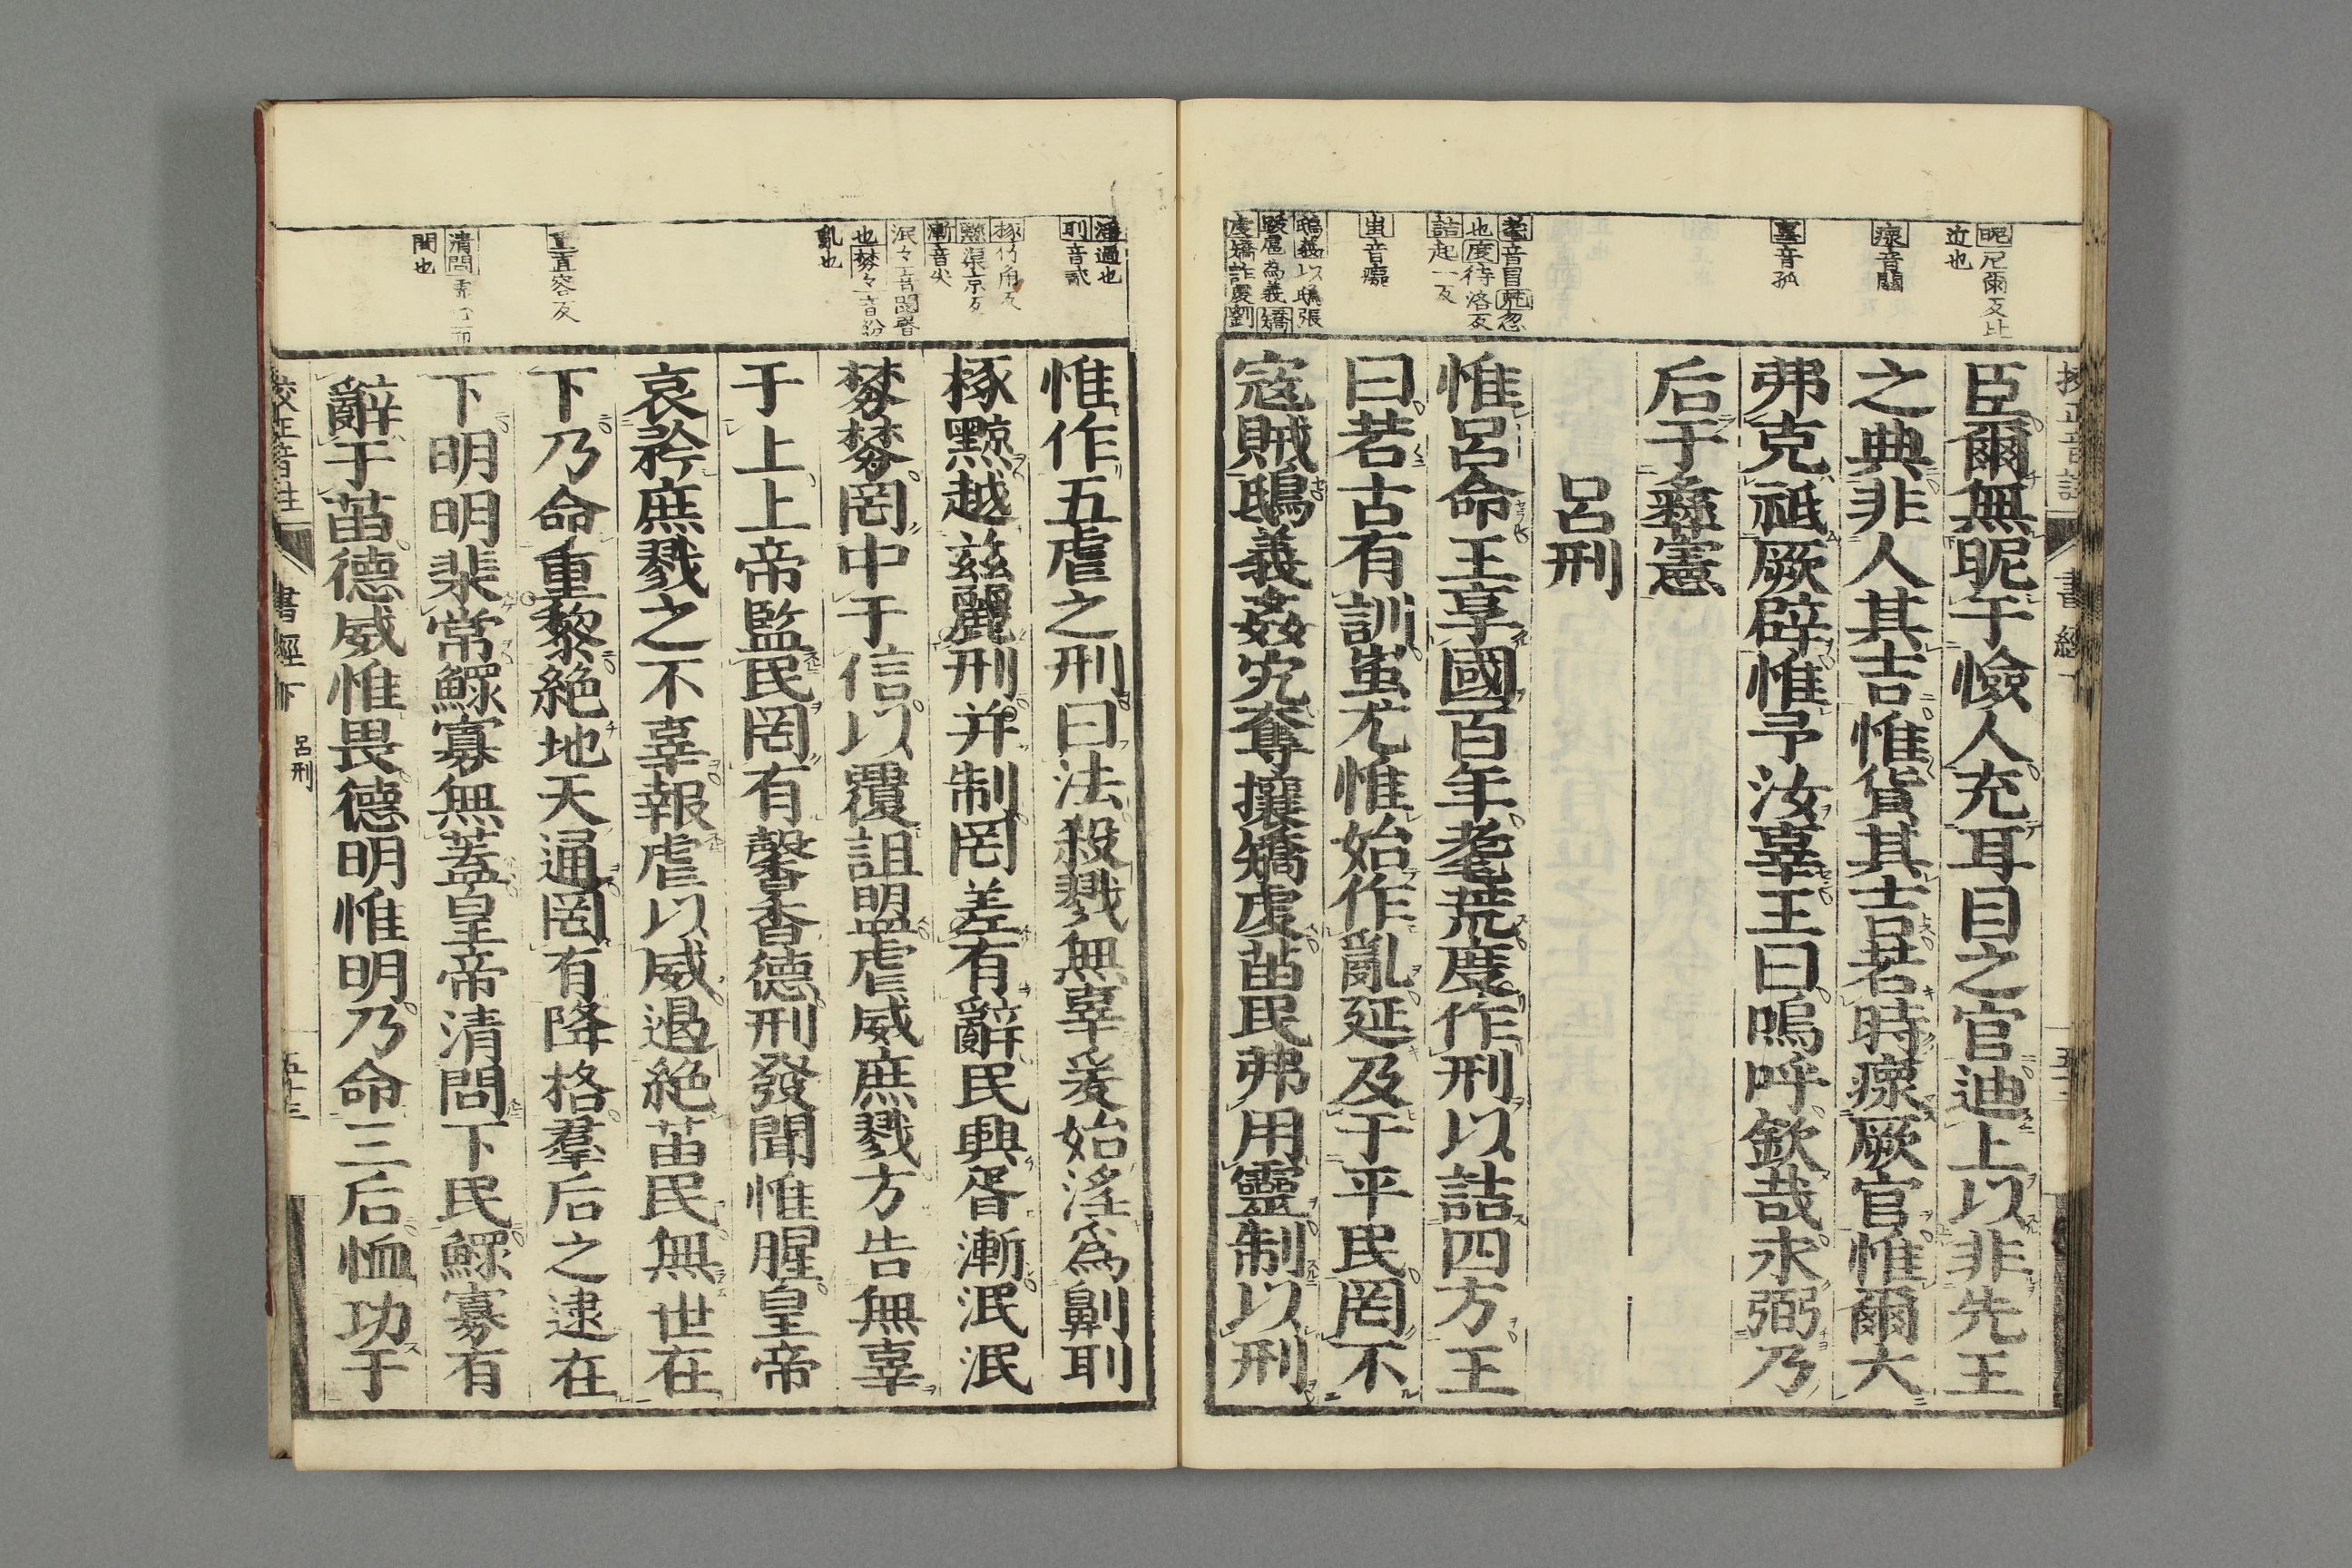 昵尼爾反比
近也
瘝音關
辜音孤
耄音目荒忽
也度待洛反
詰起一反
蚩音癡
鴟義以鴟張
跋扈為義矯
虔矯詐虔劉
臣爾無昵于憸人充耳目之官迪上以非先王
之典非人其吉惟貨其吉若時瘝厥官惟爾大
弗克祗厥辟惟予汝辜王曰嗚呼欽哉永弼乃
后于彝憲
呂刑
惟呂命王享國百年耄荒度作刑以詰四方王
曰若古有訓蚩尤惟始作亂延及于平民罔不
寇賊鴟義姦宄奪攘矯虔苗民弗用靈制以刑
淫過也
刵音貳
椓竹角反
黥渠京反
漸音尖
泯々音閔昬
也棼々音紛
亂也
重直容反
清問
聞也
惟作五虐之刑曰法殺戮無辜爰始淫為劓刵
椓黥越茲麗刑并制罔差有辭民興胥漸泯泯
棼棼罔中于信以覆詛盟虐威庶戮方告無辜
于上上帝監民罔有馨香德刑發聞惟腥皇帝
哀矜庶戮之不辜報虐以威遏絕苗民無世在
下乃命重黎絕地天通罔有降格羣后之逮在
下明明棐常鰥寡無蓋皇帝清問下民鰥寡有
辭于苗德威惟畏德明惟明乃命三后恤功于
校正音註 書經下 呂刑 五十三